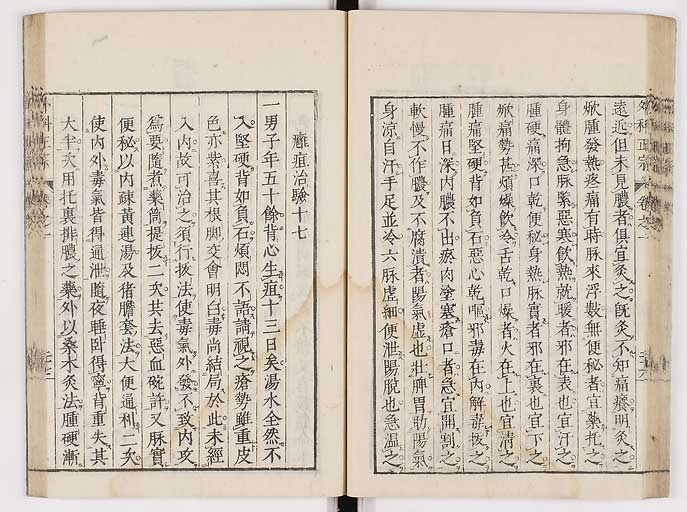 外科正宗 卷之一
遠近但未見膿者俱宜灸之既灸不知痛癢明灸之
焮腫發熱疼痛有時脈來浮數無便秘者宜藥托之
身體拘急脈緊惡寒飲熱就暖者邪在表也宜汗之
腫硬痛深口乾便秘身熱脈實者邪在裏也宜下之
焮痛勢甚煩燥飲冷舌乾口燥者火在上也宜清之
腫痛堅硬背如負石惡心乾嘔邪毒在內解毒拔之
腫痛日深內膿不出瘀肉塗塞瘡口者急宜開割之
軟慢不作膿及不腐潰者陽氣虛也壯脾胃助陽氣
身涼自汗手足並冷六脈虛細便泄陽脫也急溫之
癰疽治驗十七
一男子年五十餘背心生疽十三日矣湯水全然不
入堅硬背如負石煩悶不語請視之瘡勢雖重皮
色亦紫喜其根腳交會明白毒尚結局於此未經
入內故可治之須行拔法使毒氣外發不致內攻
為要隨煮藥筒提拔二次共去惡血碗許又脈實
便秘以內疎黃連湯及猪膽套法大便通利二次
使內外毒氣皆得通泄隨夜睡卧得寧背重失其
大半次用托裏排膿之藥外以桑木灸法腫硬漸